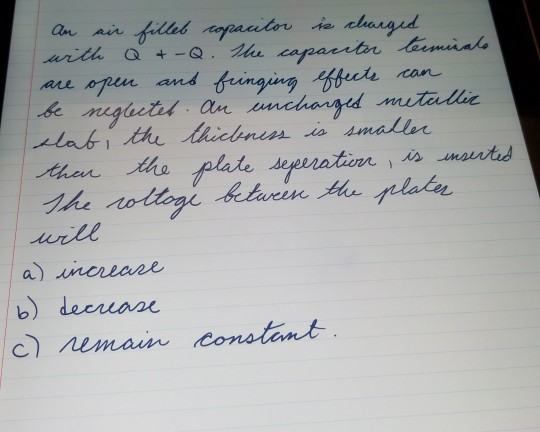 An air filled capacitor is charged
with Q + -Q. The capacitor terminals
are open and fringing effects can
be neglected. An uncharged metallic
slab, the thickness is smaller
than the plate seperation, is inserted
The voltage between the plates
will
a) increase
b) decrease
c) remain constant.